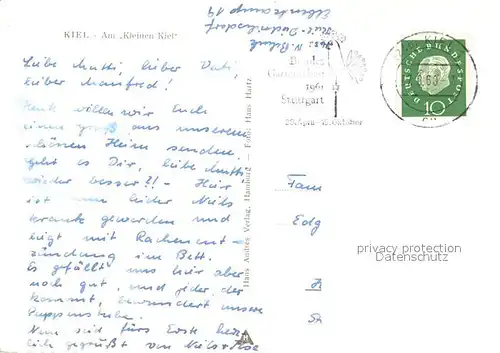 KIEL - Am „Kleinen Kiel"
Elbenkamp 19
Kiel-Dietrichsdorf
Abs: N.
Liebe Mutti, lieber Vati,
lieber Manfred!
Heute wollen wir Euch
einen Gruß aus unserem
schönen Heim senden.
geht es Dir, liebe Mutti
wieder besser?! - Hier
ist nun leider Niels
krank geworden und
liegt mit Rachenent-
zündung im Bett.
Es gefällt uns hier aber
noch gut, und jeder, der
kommt, bewundert unsere
Puppenstube.
Nun seid fürs Erste herz-
lich gegrüßt von Niels
Hans Andres Verlag, Hamburg - Foto: Hans Hartz
Bundes
Gartenschau
1961
Stuttgart
29. April - 15. Oktober
KIEL
DEUTSCHE BUNDESPOST
10
Fam
Edg
privacy protection
Datenschutz